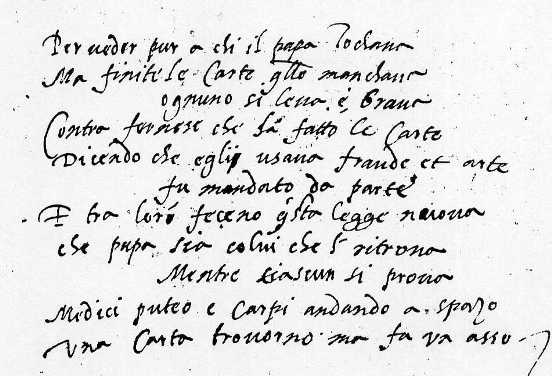 Per veder pur a chi il papa Tochava
Ma finite le Carte qllo manchava
ognuno si leva è brava
Contra fernese che hà fatto le Carte
Dicendo che egli usava fraude et arte
fu mandato da parte
E tra loró feceno qsta legge nuova
che papa sia colui che lo ritrova
Mentre ciascun si prova
Medici puteo e Carpi andando a spaso
una Carta trovorno ma fu un asso